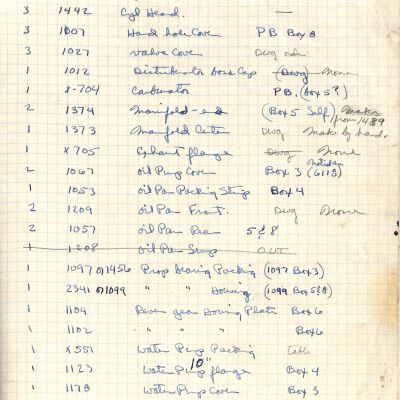 3 1442 Cyl Head. —
3 1007 Hand hole Cove PB Box 8
3 1027 valve Cove Dwg
1 1012 Distributor base Cap (Dwg) None
1 X-704 Carburator P.B. (box 5?)
2 1374 Manifold-end (Box 5 Self) from 1489
1 1373 Manifold Center Dwg Make by hand.
1 X705 Exhaust flange Dwg None
2 1067 Oil Pump Cover Box 3 (6118)
1 1053 Oil Pan Packing Strip Box 4
2 1209 Oil Pan Front. Dwg None
2 1057 Oil Pan Rear 5 & 8
1 1208 Oil Pan OUT
1 1097 or 1456 Pump bearing Packing (1097 Box 3)
1 2341 or 1099 " " Housing (1099 Box 5&8)
1 1104 Rever gear Housing Plate Box 6
1 1102 " " " Box 6
1 X551 Water Pump Packing Table
1 1123 Water Pump 10" flange Box 4
1 1178 Water Pump Cover Box 3